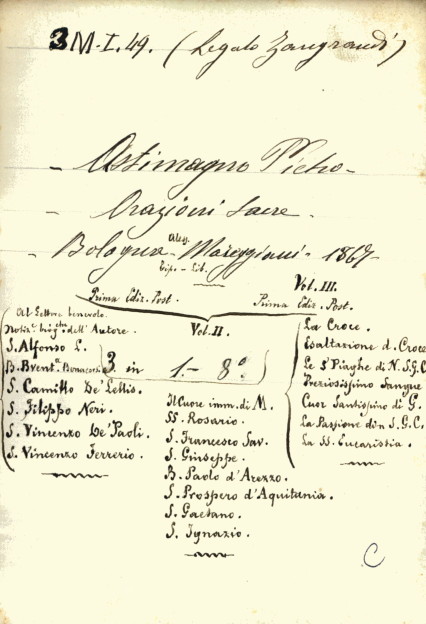 3 M-I. 49. (Legato Zangrandi)
- Astimagno Pietro -
- Orazioni Sacre -
- Bologna - Aless. Mareggiani - 1867 -
tip. - Lib.
Prima Ediz. Post.
Al Lettore benevolo.
Notiz.e biog.che dell'Autore.
S. Alfonso L.
B. Bvent.a Bonaccorsi
S. Camillo De' Lellis.
S. Filippo Neri.
S. Vincenzo De' Paoli.
S. Vincenzo Ferrerio.
3. in 1.- 8°.
Vol. II.
Il Cuore imm. di M.
SS. Rosario.
S. Francesco Sav.
S. Giuseppe.
B. Paolo d'Arezzo.
S. Prospero d'Aquitania.
S. Gaetano.
S. Ignazio.
Vol. III.
Prima Ediz. Post.
La Croce.
Esaltazione d. Croce
Le 5 Piaghe di N.S.G.C.
Preziosissimo Sangue
Cuor Santissimo di G.
La Passione di N.S.G.C.
La SS. Eucaristia.
C